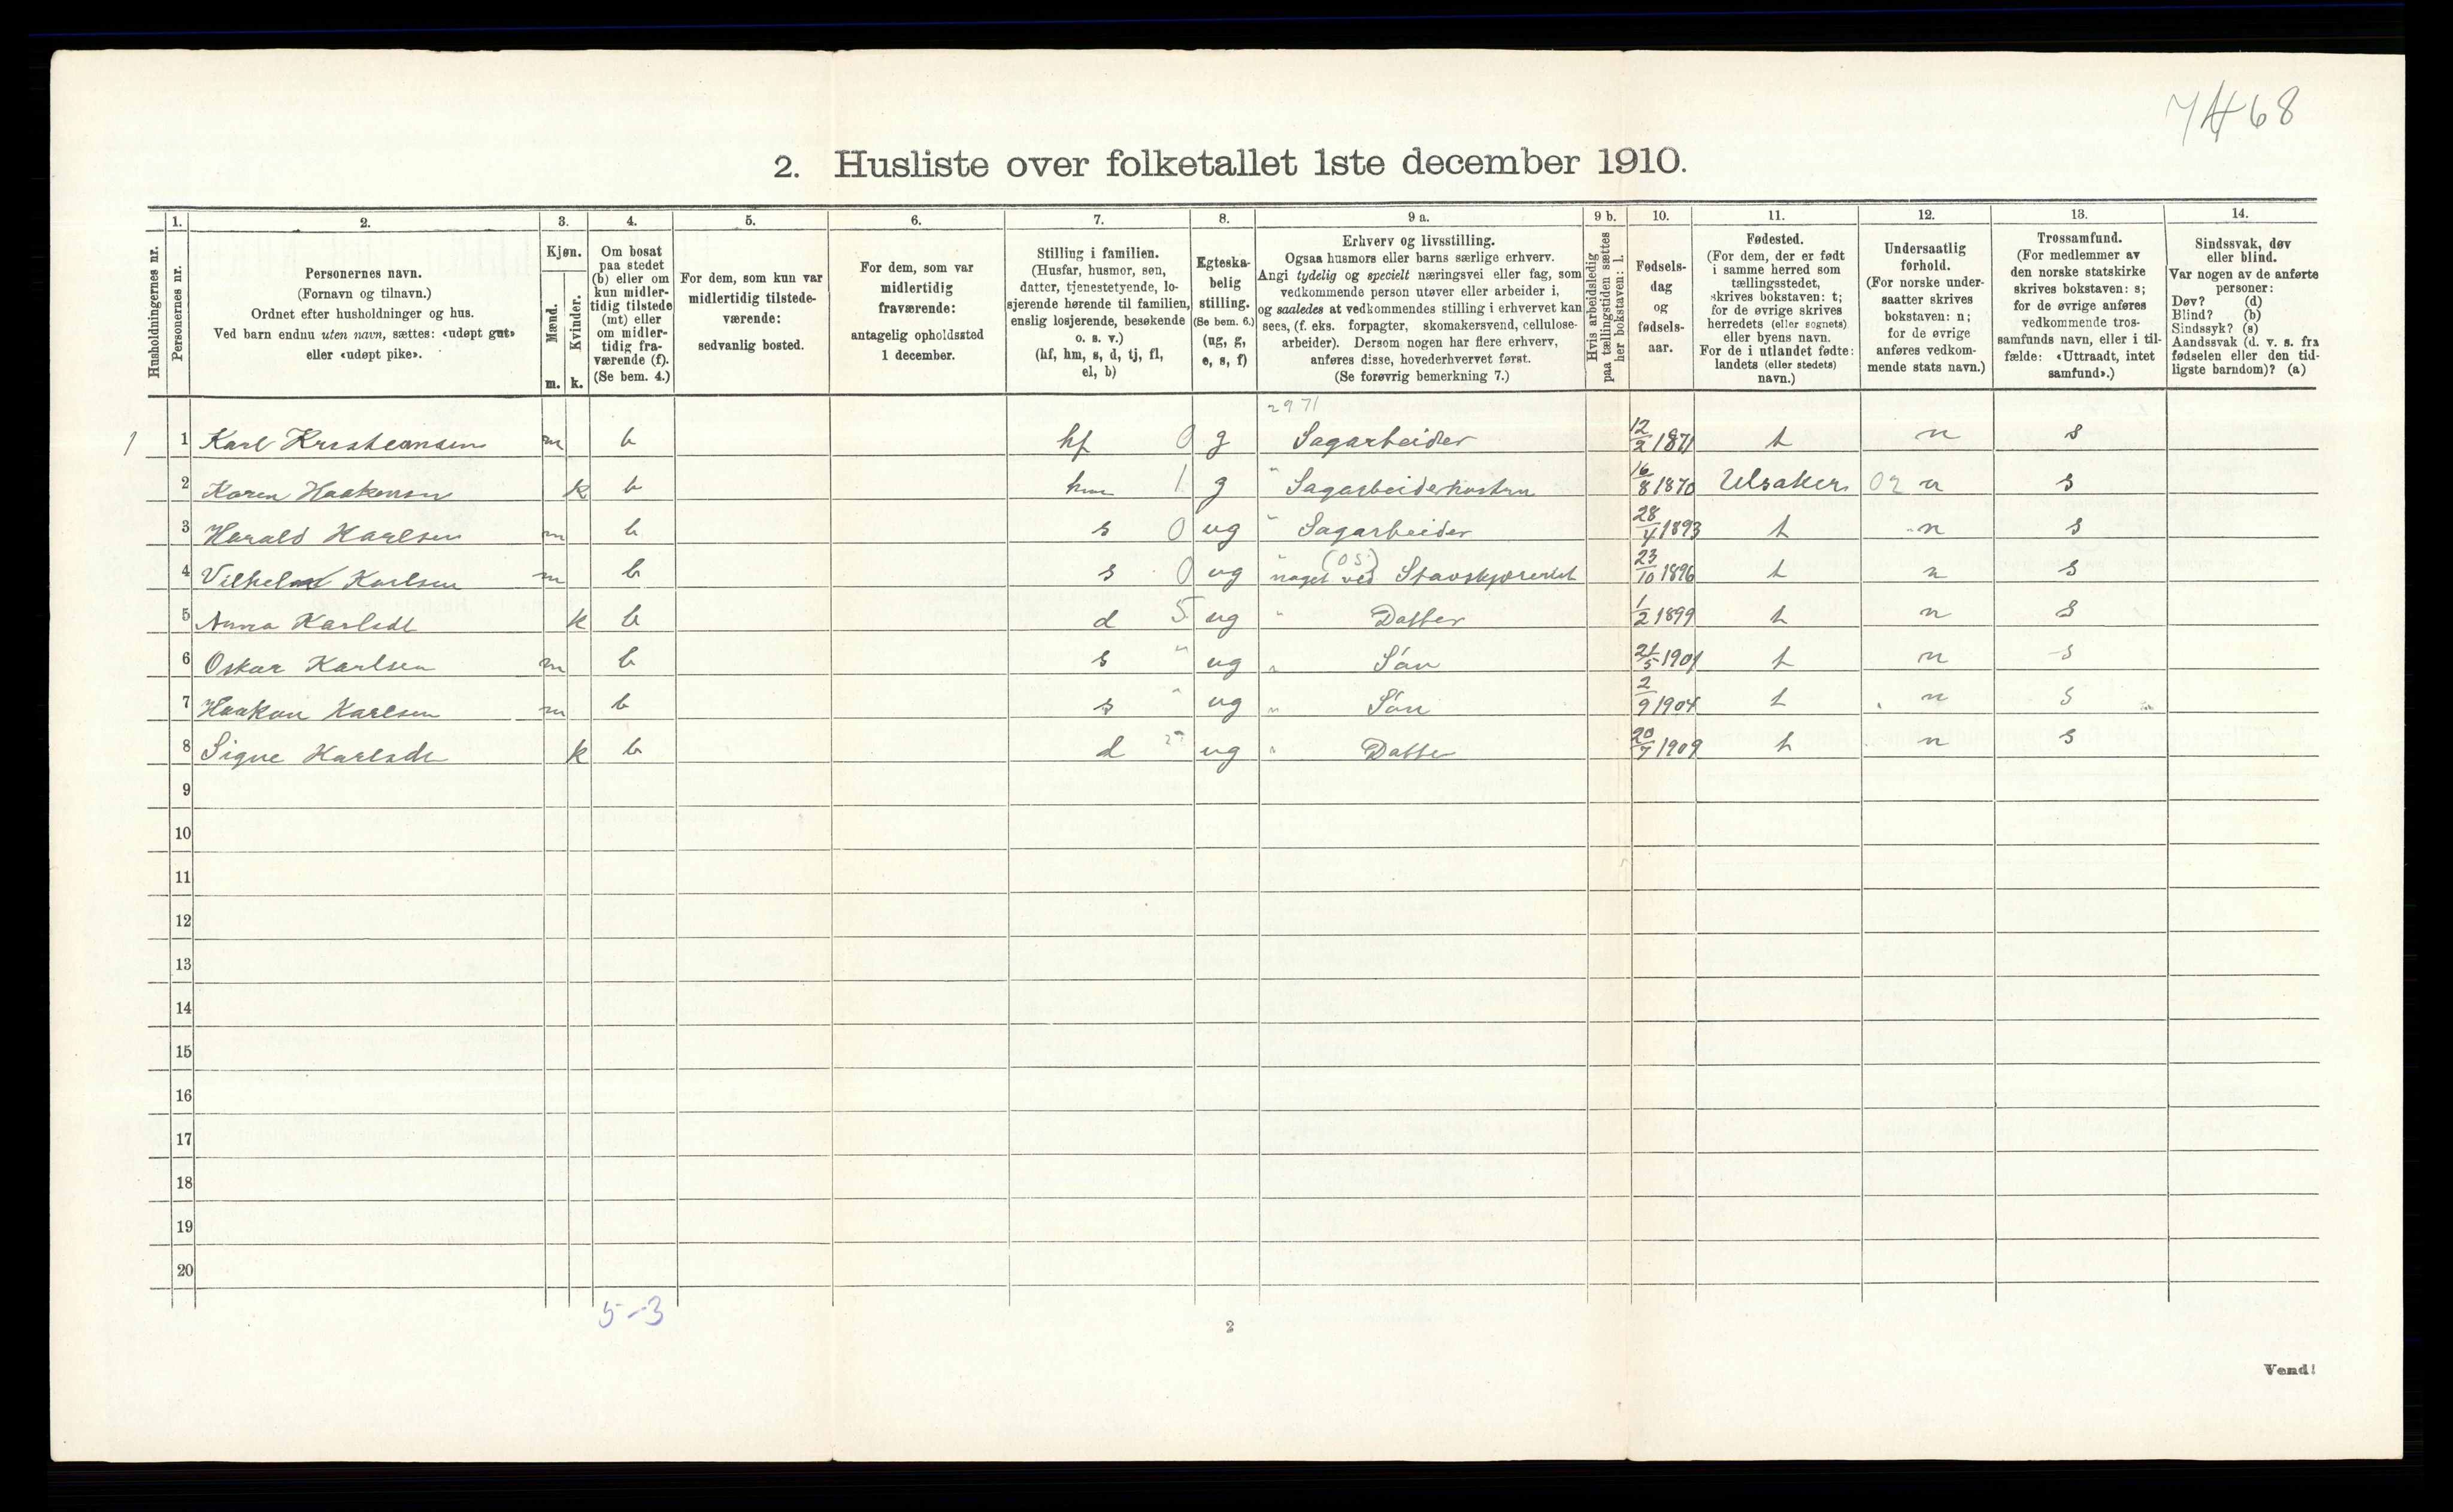 68
2. Husliste over folketallet 1ste december 1910.
Husholdningernes nr.
1. Personernes nr.
2. Personernes navn. (Fornavn og tilnavn.) Ordnet efter husholdninger og hus. Ved barn endnu uten navn, sættes: «udøpt gut» eller «udøpt pike».
3. Kjøn. Mænd. m. Kvinder. k.
4. Om bosat paa stedet (b) eller om kun midlertidig tilstede (mt) eller om midlertidig fraværende (f). (Se bem. 4.)
5. For dem, som kun var midlertidig tilstedeværende: sedvanlig bosted.
6. For dem, som var midlertidig fraværende: antagelig opholdssted 1 december.
7. Stilling i familien. (Husfar, husmor, søn, datter, tjenestetyende, losjerende hørende til familien, enslig losjerende, besøkende o. s. v.) (hf, hm, s, d, tj, fl, el, b)
8. Egteskabelig stilling. (Se bem. 6.) (ug, g, e, s, f)
9 a. Erhverv og livsstilling. Ogsaa husmors eller barns særlige erhverv. Angi tydelig og specielt næringsvei eller fag, som vedkommende person utøver eller arbeider i, og saaledes at vedkommendes stilling i erhvervet kan sees, (f. eks. forpagter, skomakersvend, cellulosearbeider). Dersom nogen har flere erhverv, anføres disse, hovederhvervet først. (Se forøvrig bemerkning 7.)
9 b. Hvis arbeidsledig paa tællingstiden sættes her bokstaven: l.
10. Fødselsdag og fødselsaar.
11. Fødested. (For dem, der er født i samme herred som tællingsstedet, skrives bokstaven: t; for de øvrige skrives herredets (eller sognets) eller byens navn. For de i utlandet fødte: landets (eller stedets) navn.)
12. Undersaatlig forhold. (For norske undersaatter skrives bokstaven: n; for de øvrige anføres vedkommende stats navn.)
13. Trossamfund. (For medlemmer av den norske statskirke skrives bokstaven: s; for de øvrige anføres vedkommende trossamfunds navn, eller i tilfælde: «Uttraadt, intet samfund».)
14. Sindssvak, døv eller blind. Var nogen av de anførte personer: Døv? (d) Blind? (b) Sindssyk? (s) Aandssvak (d. v. s. fra fødselen eller den tidligste barndom)? (a)
2971
1 1 Karl Kristiansen m b hf 0 g Sagarbeider 12/2 1871 t n s
2 Karen Haakensen k b hm 1 g " Sagarbeiderhustru 16/8 1870 Ulsaker 02 n s
3 Harald Karlsen m b s 0 ug " Sagarbeider 28/4 1893 t n s
(os)
4 Vilhelm Karlsen m b s 0 ug " noget ved Stavskjæreriet 23/10 1896 t n s
5 Anna Karlsdt k b d 5 ug " Datter 1/2 1899 t n s
6 Oskar Karlsen m b s " ug " Søn 21/5 1901 t n s
7 Haakon Karlsen m b s " ug " Søn 2/9 1904 t n s
8 Signe Karlsdt k b d " ug " Datter 20/7 1909 t n s
9
10
11
12
13
14
15
16
17
18
19
20
5-3
2
Vend!